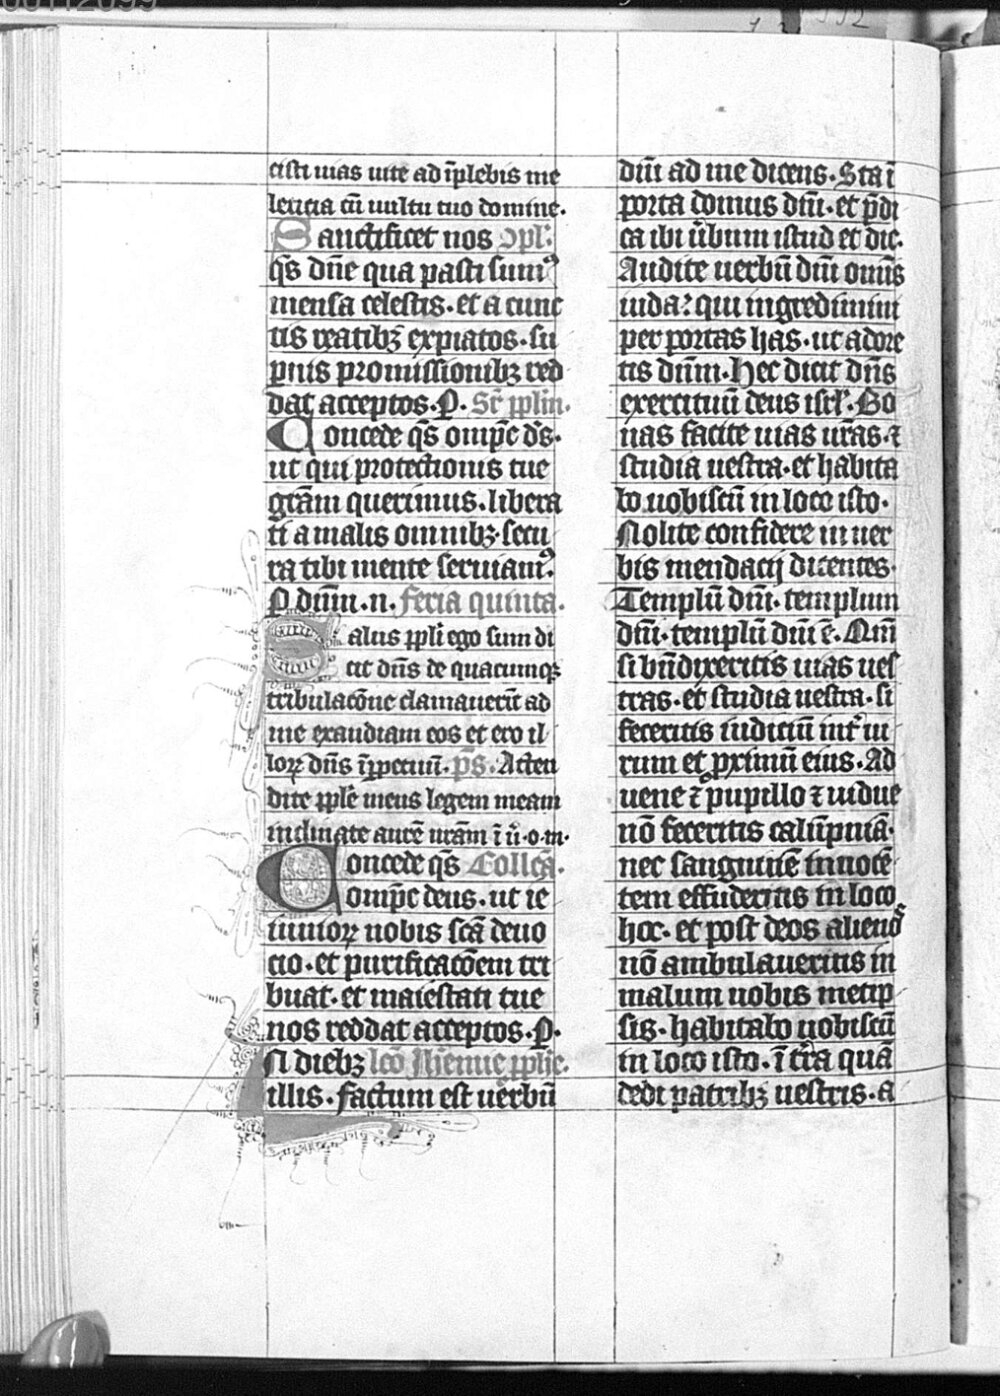 cisti uias uite adīplebis me
leticia cū uultu tuo domine.
Sanctificet nos ɔpl:
qs̄ dn̄e qua pasti sumꝰ
mensa celestis · et a cunc
tis reatibꝫ expiatos · su
pnis promissionibꝫ red
dat acceptos · P. Sr̄ pplm̄.
Concede qs̄ omp̄c ds̄.
ut qui protectionis tue
grām querimus · libera
ti a malis omnibꝫ · secu
ra tibi mente seruiamꝰ.
P dn̄m · n. feria quinta.
Salus ppli ego sum di
cit dn̄s de quacumqꝫ
tribulacōne clamauerīt ad
me exaudiam eos et ero il
loꝝ dn̄s īppetuū · ps̄. Atten
dite pplē meus legem meam
inclinate aurē urām ī ū · o · m ·
Concede qs̄ Collcā.
omp̄c deus · ut ie
iunioꝝ nobis scā deuo
cio · et purificacōem tri
buat · et maiestati tue
nos reddat acceptos · P.
In diebꝫ lcō Jhemie pphe.
illis · factum est uerbū
dn̄i ad me dicens · Sta ī
porta domus dn̄i · et p̄di
ca ibi ūbum istud et dic.
Audite uerbū dn̄i omīs
iuda: qui ingredimini
per portas has · ut adore
tis dn̄m · Hec dicit dn̄s
exercituū deus isrl̄ · Bo
nas facite uias ur̄as · ⁊
studia uestra · et habita
bo uobiscū in loco isto.
Nolite confidere in uer
bis mendacij dicentes.
Templū dn̄i · templum
dn̄i · templū dn̄i ē · Nam̄
si bn̄dixeritis uias ues
tras · et studia uestra · si
feceritis iudiciū int̄ ui
rum et pximū eius · Ad
uene ⁊ pupillo ⁊ uidue
nō feceritis calūpniā.
nec sanguinē innocē
tem effuderitis in loco
hoc · et post deos alienos
nō ambulaueritis in
malum uobis metip
sis · habitabo uobiscū
in loco isto · ī tr̄a quā
dedi patribꝫ uestris · a